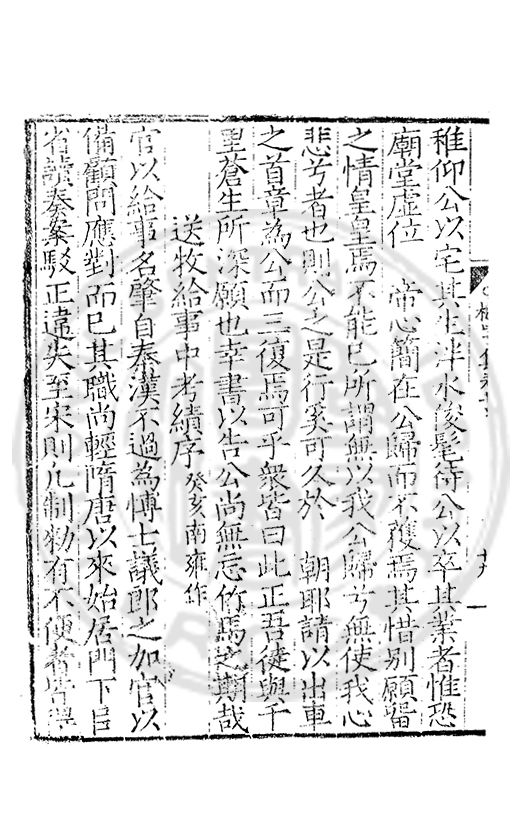 稚仰公以宅其生泮水俊髦待公以卒其業者惟恐
廟堂虛位 帝心簡在公歸而不復焉其惜別願留
之情皇皇焉不能已所謂無以我公歸兮無使我心
悲兮者也則公之是行奚可久於 朝耶請以出車
之首章為公而三復焉可乎衆皆曰此正吾徒與千
里蒼生所深願也幸書以告公尚無忘竹馬之期哉
送牧給事中考績序 癸亥南雍作
官以給事名肇自秦漢不過為博士議郎之加官以
備顧問應對而已其職尚輕隋唐以來始居門下
省讀奏案駁正違失至宋則凡制勑有不便者